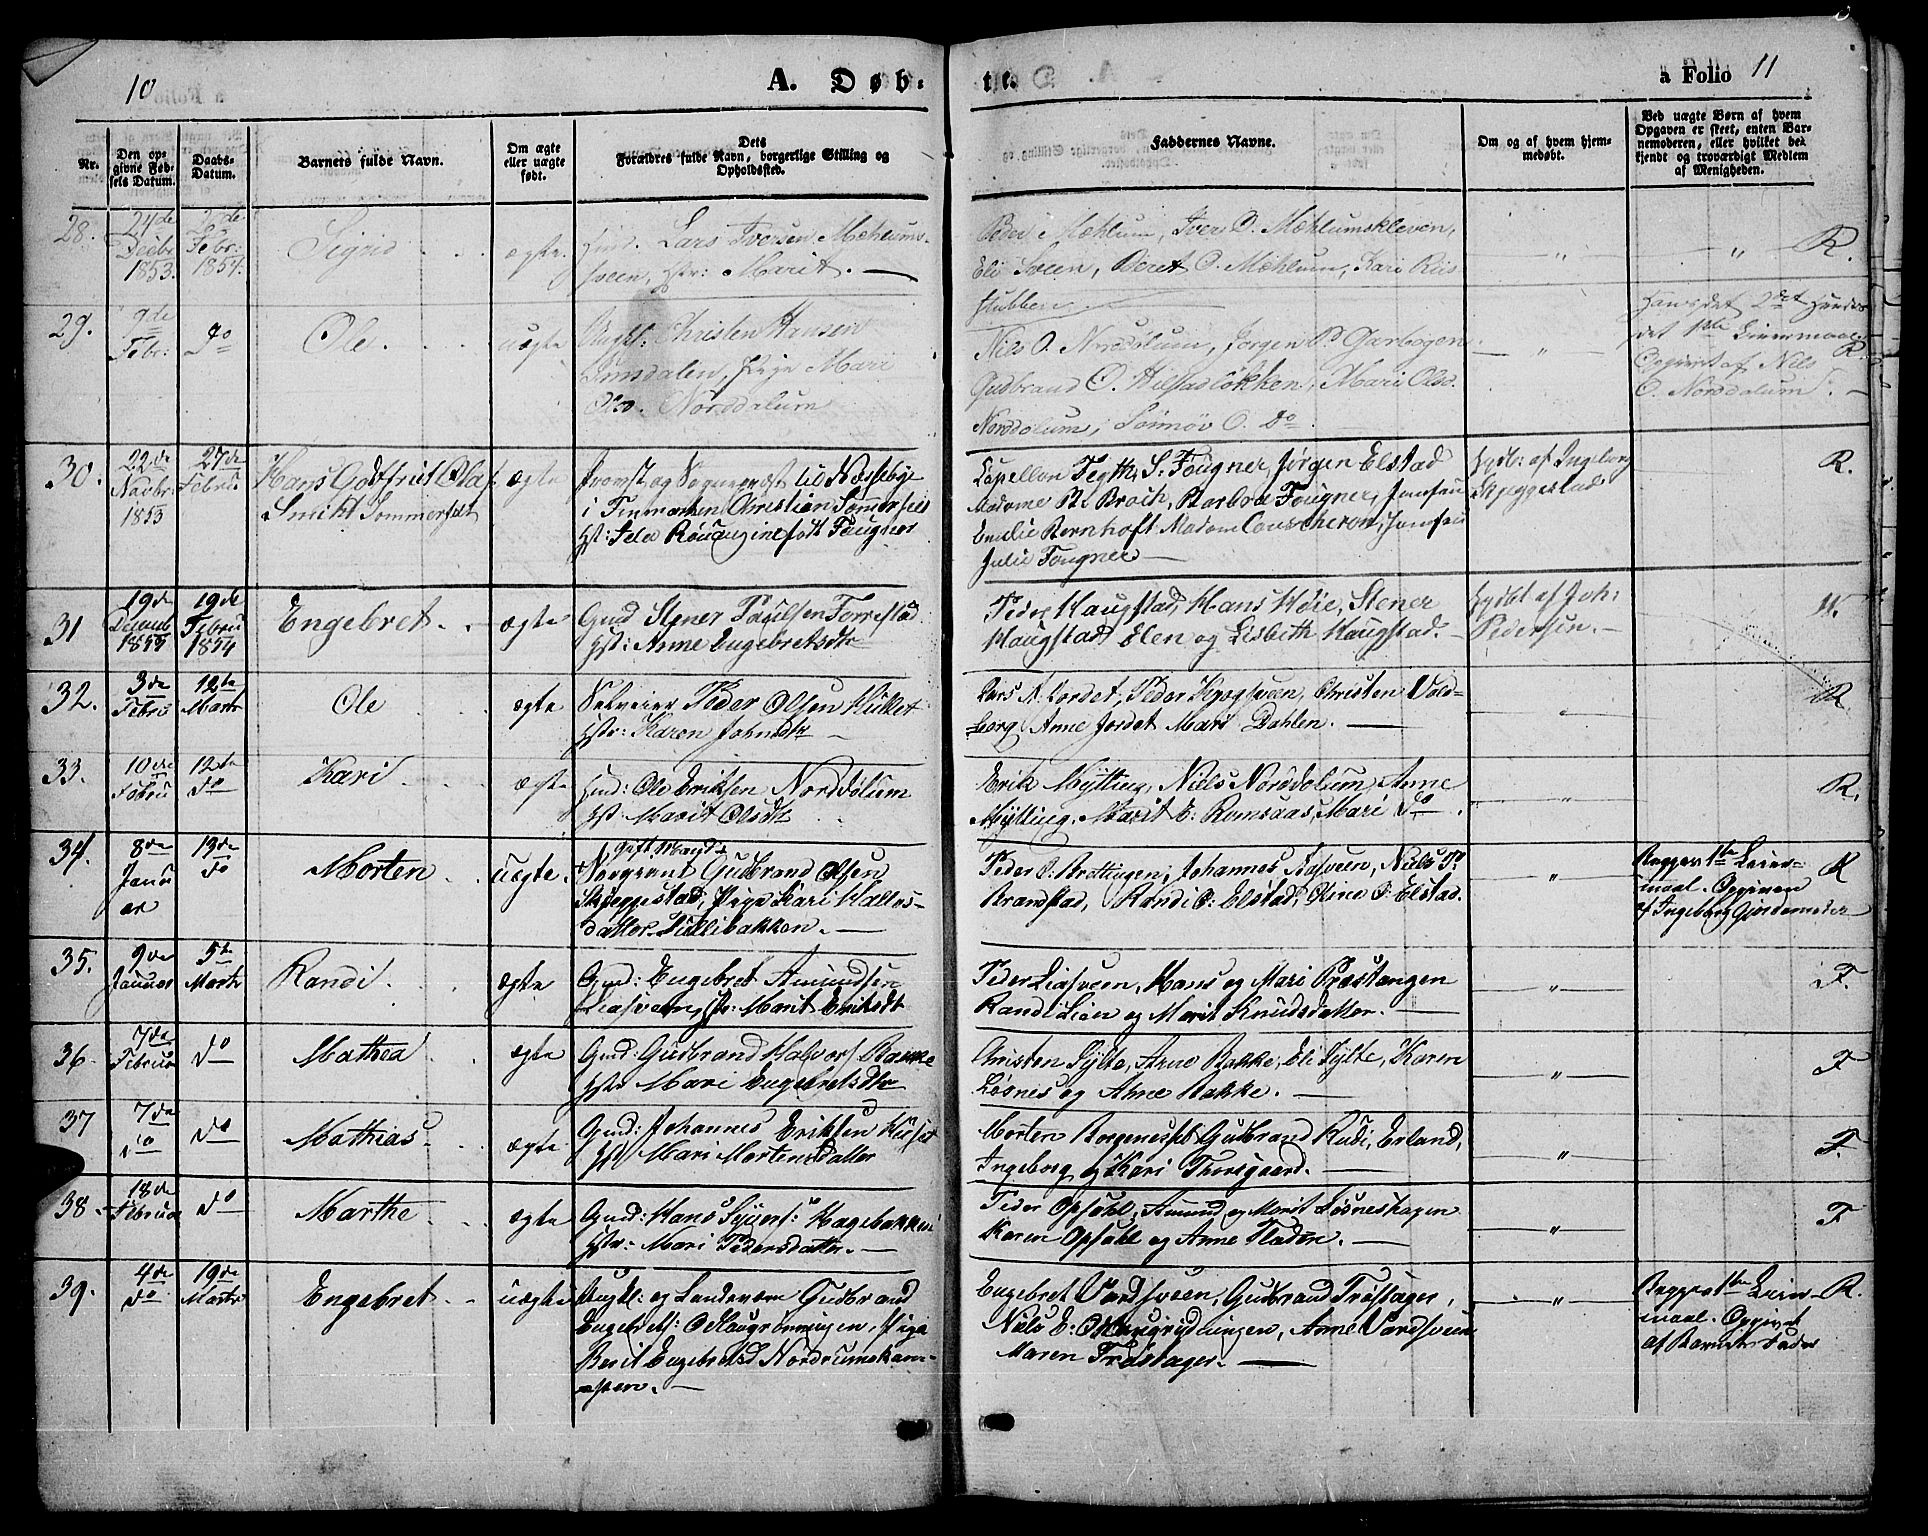 10
A. Døb-
te.
a Folio 11
Nr.
Den op-
givne Fød-
sels Datum.
Daabs-
Datum.
Barnets fulde Navn.
Om ægte
eller uægte
født.
Dets
Forældres fulde Navn, borgerlige Stilling og
Opholdssted.
Faddernes Navne.
Om og af hvem hjem-
medøbt.
Ved uægte Børn af hvem
Opgaven er skeet, enten Bar-
nemoderen, eller hvilket be-
kjendt og troværdigt Medlem
af Menigheden.
28.
24de
Decbr
1853.
Febr:
1854.
Sigrid
ægte
Lars Iversen Mæhlums-
sveen, Hstr: Marit.
Peder Mæhlum, Iver O. Mæhlumskleven,
Eli Sveen, Beret O. Mæhlum, Kari Riis-
stubben
"
"
R.
29.
9de
Febr:
do
Ole.
uægte
Ungk: Christen Hansen
Imsdalen, Pige Mari
Olsd. Norddolum
Nils O. Norddolum, Jørgen P. Garbogen
Gudbrand O. Hilsasløkken, Mari Olsd.
Norddolum, Sønnøv O. do
"
det 1ste Leiermaal
Opgivet af Nils
O. Norddolum.
R.
30.
22de
Novbr
1853
27de
Febru
Hans Godtfried Olaf
Smitt Sommerfelt
ægte
Provst og Sognepræst til Næsseby
i Finmarken Christian Sommerfelt
Fougner
Capellan Fegth, S. Fougner, Jørgen Elstad
Madame Broch, Barbra Fougner, Jomfru
Emilie Bernhoft Madam Conscheron, Jomfru
Julie Fougner
Hjdb: af Ingeborg
Skjeggestad
R.
31
19de
Decemb
1853
19de
Febru
1854
Engebret.
ægte
Gmd Stener Poulsen Forrestad
Hst: Anne Engebretsdtr
Peder Haugstad, Hans Høie, Stener
Haugstad Elen og Lisbeth Haugstad.
Hjdbt af Joh:
Pedersen.
32.
3de
Febru
12te
Marts
Ole
ægte
Selveier Peder Olsen
Hstr: Karen Johnsdtr
Lars N. Jordet, Peder Skogsveen, Christen Vold-
berg, Anne Jordet Mari Dahlen.
"
R.
33.
10de
Febru
12te
do
Kari
ægte
Hmd: Ole Eriksen Norddolum
Hst: Marit Olsdtr
Erik Mytting, Niels Norddolum, Anne
Mytting, Marit E: Romsaas, Mari do
"
R.
34.
8de
Janu
ar
13de
do
Morten
uægte
Gift Mand
Sergeant Gudbrand Olsen
Skjeggestad, Pige Kari
datter
Peder O: Brattingen, Johannes Aasveen, Niels P:
Brandstad, Randi O: Elstad, Oline O: Elstad.
"
Begges 1te Leier-
maal. Opgiven
af Ingeborg Gjordemoder
R
35.
9de
Januar
5te
Marts
Randi
ægte
Gmd: Engebret Amundsen
Liasveen, Hstr: Marit Eriksdtr
Peder Liasveen, Hans og Mari Præstangen
Randi Lien og Marit Knudsdatter.
"
F.
36.
7de
Februar
do
Mathea
ægte
Gmd: Gudbrand Halvors
Hstr Mari Engebretsdtr
Christen Sylte, Arne Bakke, Eli Sylte, Karen
Løsnes og Anne Bakke.
"
F
37
7de
do
do
Mathias
ægte
Gmd: Johannes Eriksen
Hst Mari Mortensdatter
Morten Gudbrand Rudi, Erland,
Ingeborg og Kari Thorsgaard.
"
F.
38
18de
Februar
do
Marthe
ægte
Gmd: Hans Sivers: Hagebakken
Hstr: Mari Pedersdatter.
Peder Opsahl, Amund og Marit Løsneshagen
Karen Opsahl og Anne Fladen.
"
F
39.
4de
do
19de
Marts
Engebret
uægte
Ungkl: og Landeværn Gudbrand
Engebrets: Pige
Berit Engebretsd Nordrumskam-
pen.
Engebret Vardsveen, Gudbrand Frøstager,
Niels E: Anne Vardsveen
Maren Frøstager.
"
Begges 1te Leier-
maal. Opgivet
af Barnets Fader
R.